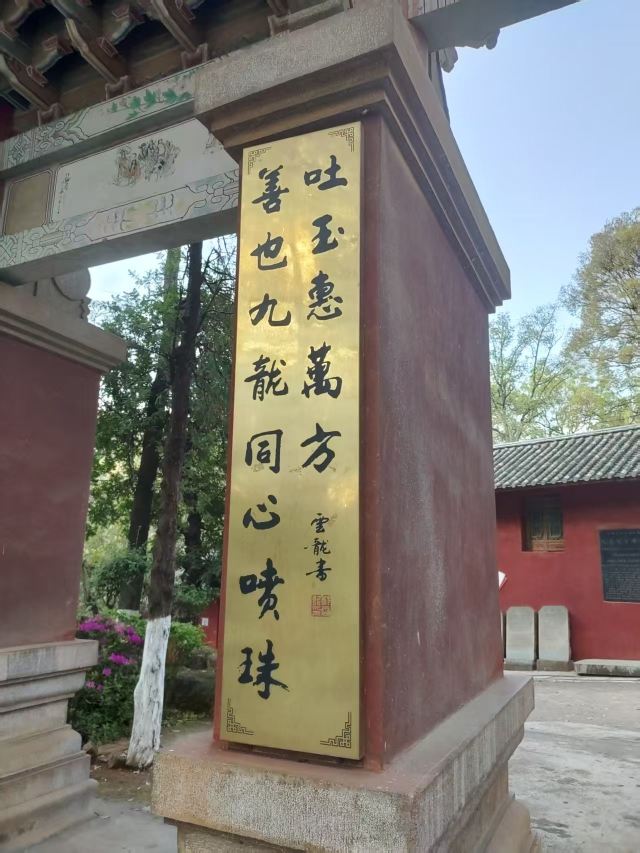 善也九龍同心喷珠
吐玉惠萬方
雲龍書